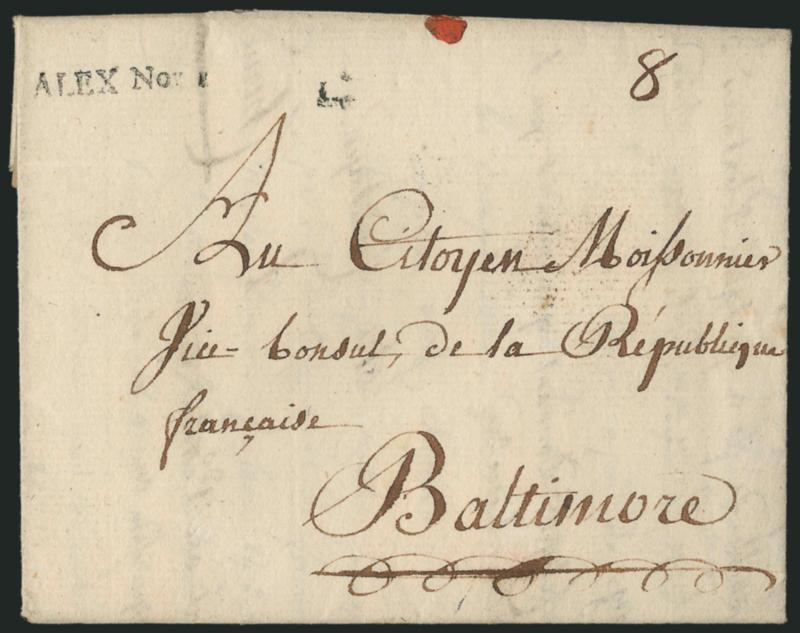 ALEX Nov
8
Au Citoyen Moissonnier
Vice-Consul, de la République
française
Baltimore